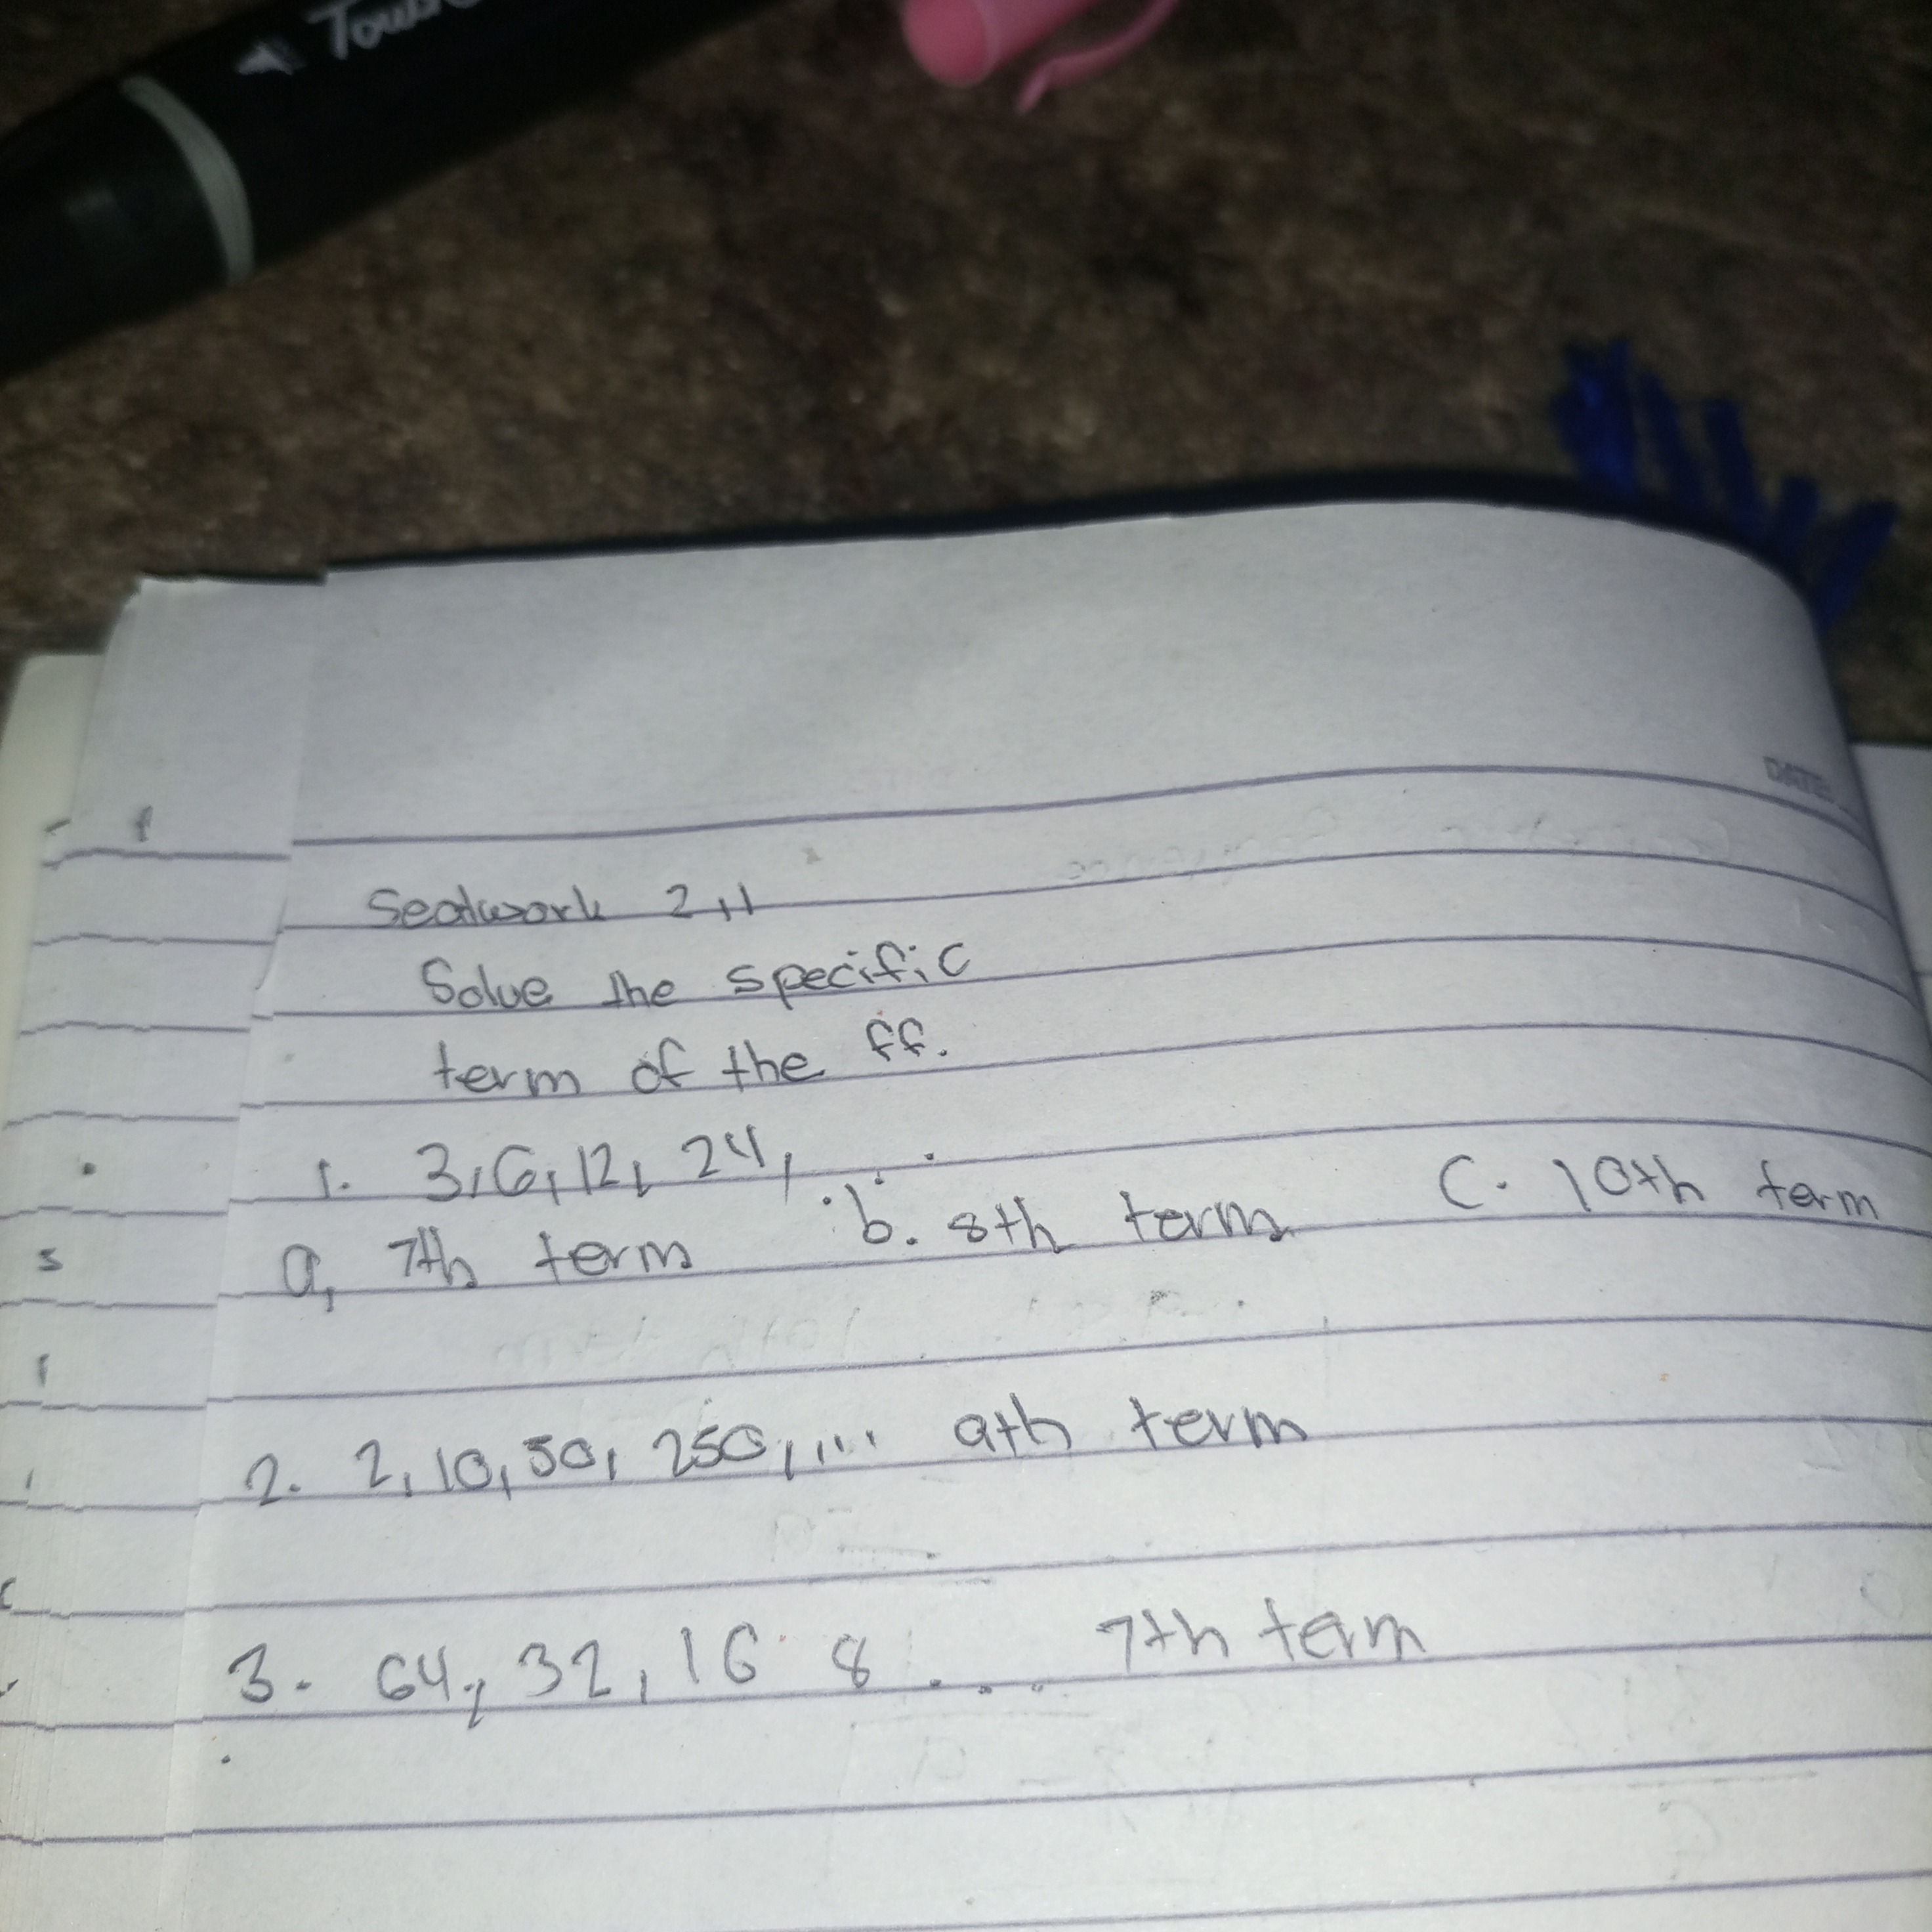 Seatwork 2.1
Solve the specific
term of the ff.
1. 3, 6, 12, 24, ...
a, 7th term b. 8th term C. 10th term
2. 2, 10, 50, 250, ... 9th term
3. 64, 32, 16 8 ... 7th term
DATE: